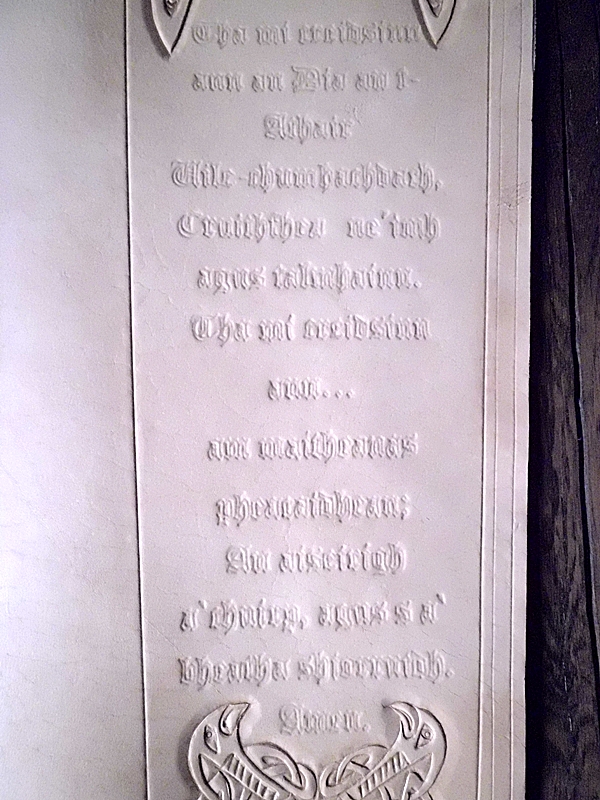 Tha mi creidsinn
ann an Dia an t-
Athair
Uile-chumhachdach,
Cruithfhea ne'imh
agus talmhainn.
Tha mi creidsinn
ann...
am maitheanas
pheacaidhean;
An aiseirigh
a`chuirp, agus s a`
bheatha shiorruidh.
Amen.